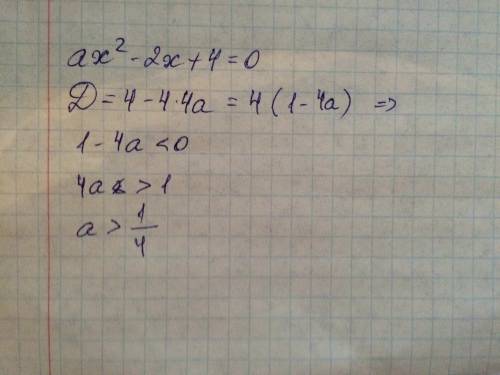 ax² - 2x + 4 = 0
D = 4 - 4·4a = 4(1 - 4a) =>
1 - 4a < 0
4a > 1
a > 1/4